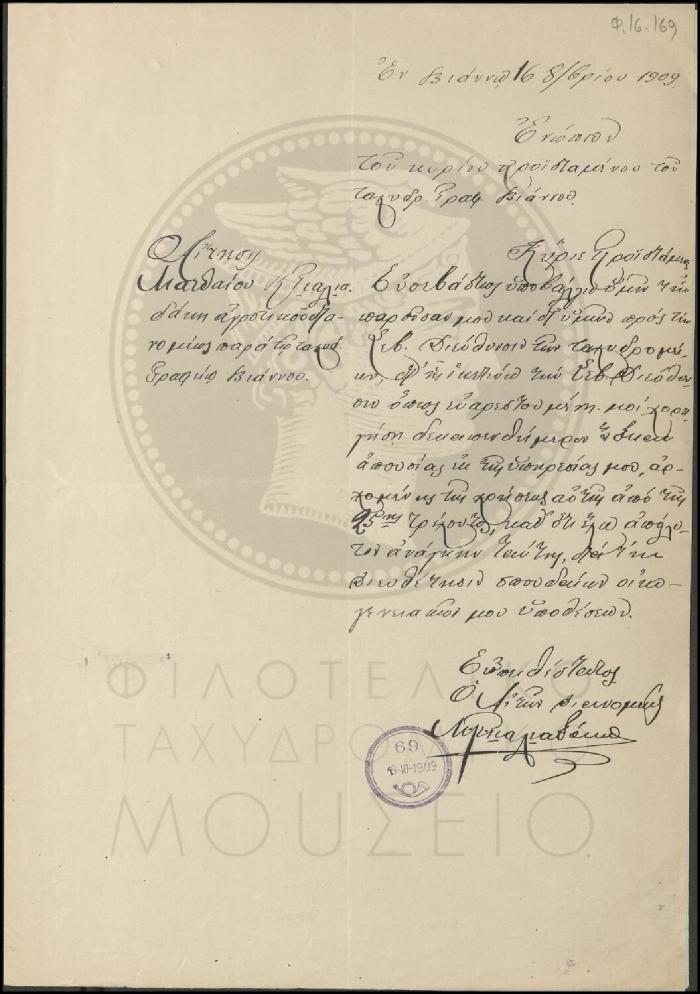 Φ.16.169
Ἐν Βιάννῳ 16 8/βρίου 1909
Ἐνώπιον
Τοῦ κυρίου Προϊσταμένου τοῦ
Ταχυδρ. Γραφ. Βιάννου.
Αἴτησις
Ματθαίου
ἀγροτικοῦ δια-
νομέως παρὰ τῷ ταχυδ.
Γραφείῳ Βιάννου.
Κύριε Προϊστάμενε
Εὐσεβάστως ὑποβάλλω ὑμῖν τὴν
παροῦσάν μου καὶ δι' ὑμῶν πρὸς τὴν
Σεβ. Διεύθυνσιν τῶν ταχυδρομεί-
ων, δι' ἧς ἱκετεύω τὴν Σεβ. Διεύθυν-
σιν ὅπως εὐαρεστουμένη μοὶ χορη-
γήσῃ δεκαπενθήμερον ἄδειαν
ἀπουσίας ἐκ τῆς ὑπηρεσίας μου, ἀρ-
χομένης τῆς χρήσεως αὐτῆς ἀπὸ τῆς
25ης τρέχοντος, καθ' ὅτι ἔχω ἀπόλυ-
τον ἀνάγκην ταύτης, διὰ τὴν
διευθέτησιν σπουδαίων οἰκο-
γενειακῶν μου ὑποθέσεων.
Εὐπειθέστατος
Ὁ Αἰτῶν διανομεὺς
69
16-10-1909
ΦΙΛΟΤΕΛΙΚΟ
ΤΑΧΥΔΡΟΜΙΚΟ
ΜΟΥΣΕΙΟ